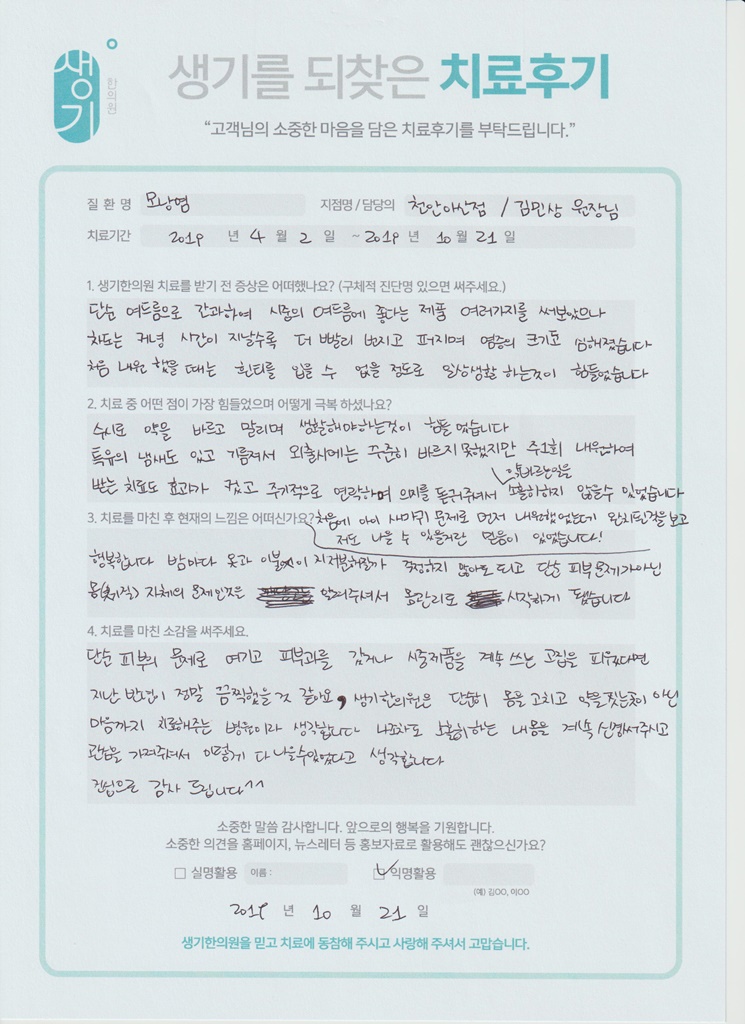 생기 한의원
생기를 되찾은 치료후기
“고객님의 소중한 마음을 담은 치료후기를 부탁드립니다.”
질 환 명 모낭염 지점명 / 담당의 천안아산점 / 김민상 원장님
치료기간 2019 년 4 월 2 일 ~ 2019 년 10 월 21 일
1. 생기한의원 치료를 받기 전 증상은 어떠했나요? (구체적 진단명 있으면 써주세요.)
단순 여드름으로 간과하여 시중의 여드름에 좋다는 제품 여러가지를 써보았으나
차도는 커녕 시간이 지날수록 더 빨리 번지고 퍼지며 염증의 크기도 심해졌습니다
처음 내원 했을 때는 흰티를 입을 수 없을 정도로 일상생활 하는것이 힘들었습니다
2. 치료 중 어떤 점이 가장 힘들었으며 어떻게 극복 하셨나요?
수시로 약을 바르고 말리며 생활해야하는것이 힘들었습니다
특유의 냄새도 있고 기름져서 외출시에는 꾸준히 바르지 못했지만 주1회 내원하여
약바르는일을
받는 치료도 효과가 컸고 주기적으로 연락하며 의지를 돋궈주셔서 소홀히하지 않을수 있었습니다
3. 치료를 마친 후 현재의 느낌은 어떠신가요? 처음에 아이 사마귀 문제로 먼저 내원했었는데 완치된걸 보고
저도 나을 수 있을거란 믿음이 있었습니다!
행복합니다 밤마다 옷과 이불이 지저분해질까 걱정하지 않아도 되고 단순 피부문제가아닌
몸(체질) 자체의 문제인것은 알려주셔서 몸관리도 시작하게 됐습니다
4. 치료를 마친 소감을 써주세요.
단순 피부의 문제로 여기고 피부과를 갔거나 시중제품을 계속 쓰는 고집을 피웠다면
지난 반년이 정말 끔찍했을것 같아요, 생기한의원은 단순히 몸을 고치고 약을짓는곳이 아닌
마음까지 치료해주는 병원이라 생각합니다 나조차도 소홀히하는 내몸을 계속 신경써주시고
관심을 가져주셔서 이렇게 다 나을수있었다고 생각합니다
진심으로 감사 드립니다^^
소중한 말씀 감사합니다. 앞으로의 행복을 기원합니다.
소중한 의견을 홈페이지, 뉴스레터 등 홍보자료로 활용해도 괜찮으신가요?
□ 실명활용 이름 : ☑ 익명활용
(예) 김OO, 이OO
2019 년 10 월 21 일
생기한의원을 믿고 치료에 동참해 주시고 사랑해 주셔서 고맙습니다.